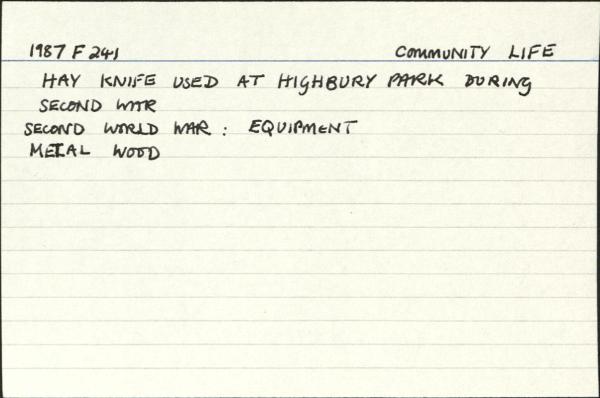 1987 F 241 COMMUNITY LIFE
HAY KNIFE USED AT HIGHBURY PARK DURING
SECOND WAR
SECOND WORLD WAR : EQUIPMENT
METAL WOOD